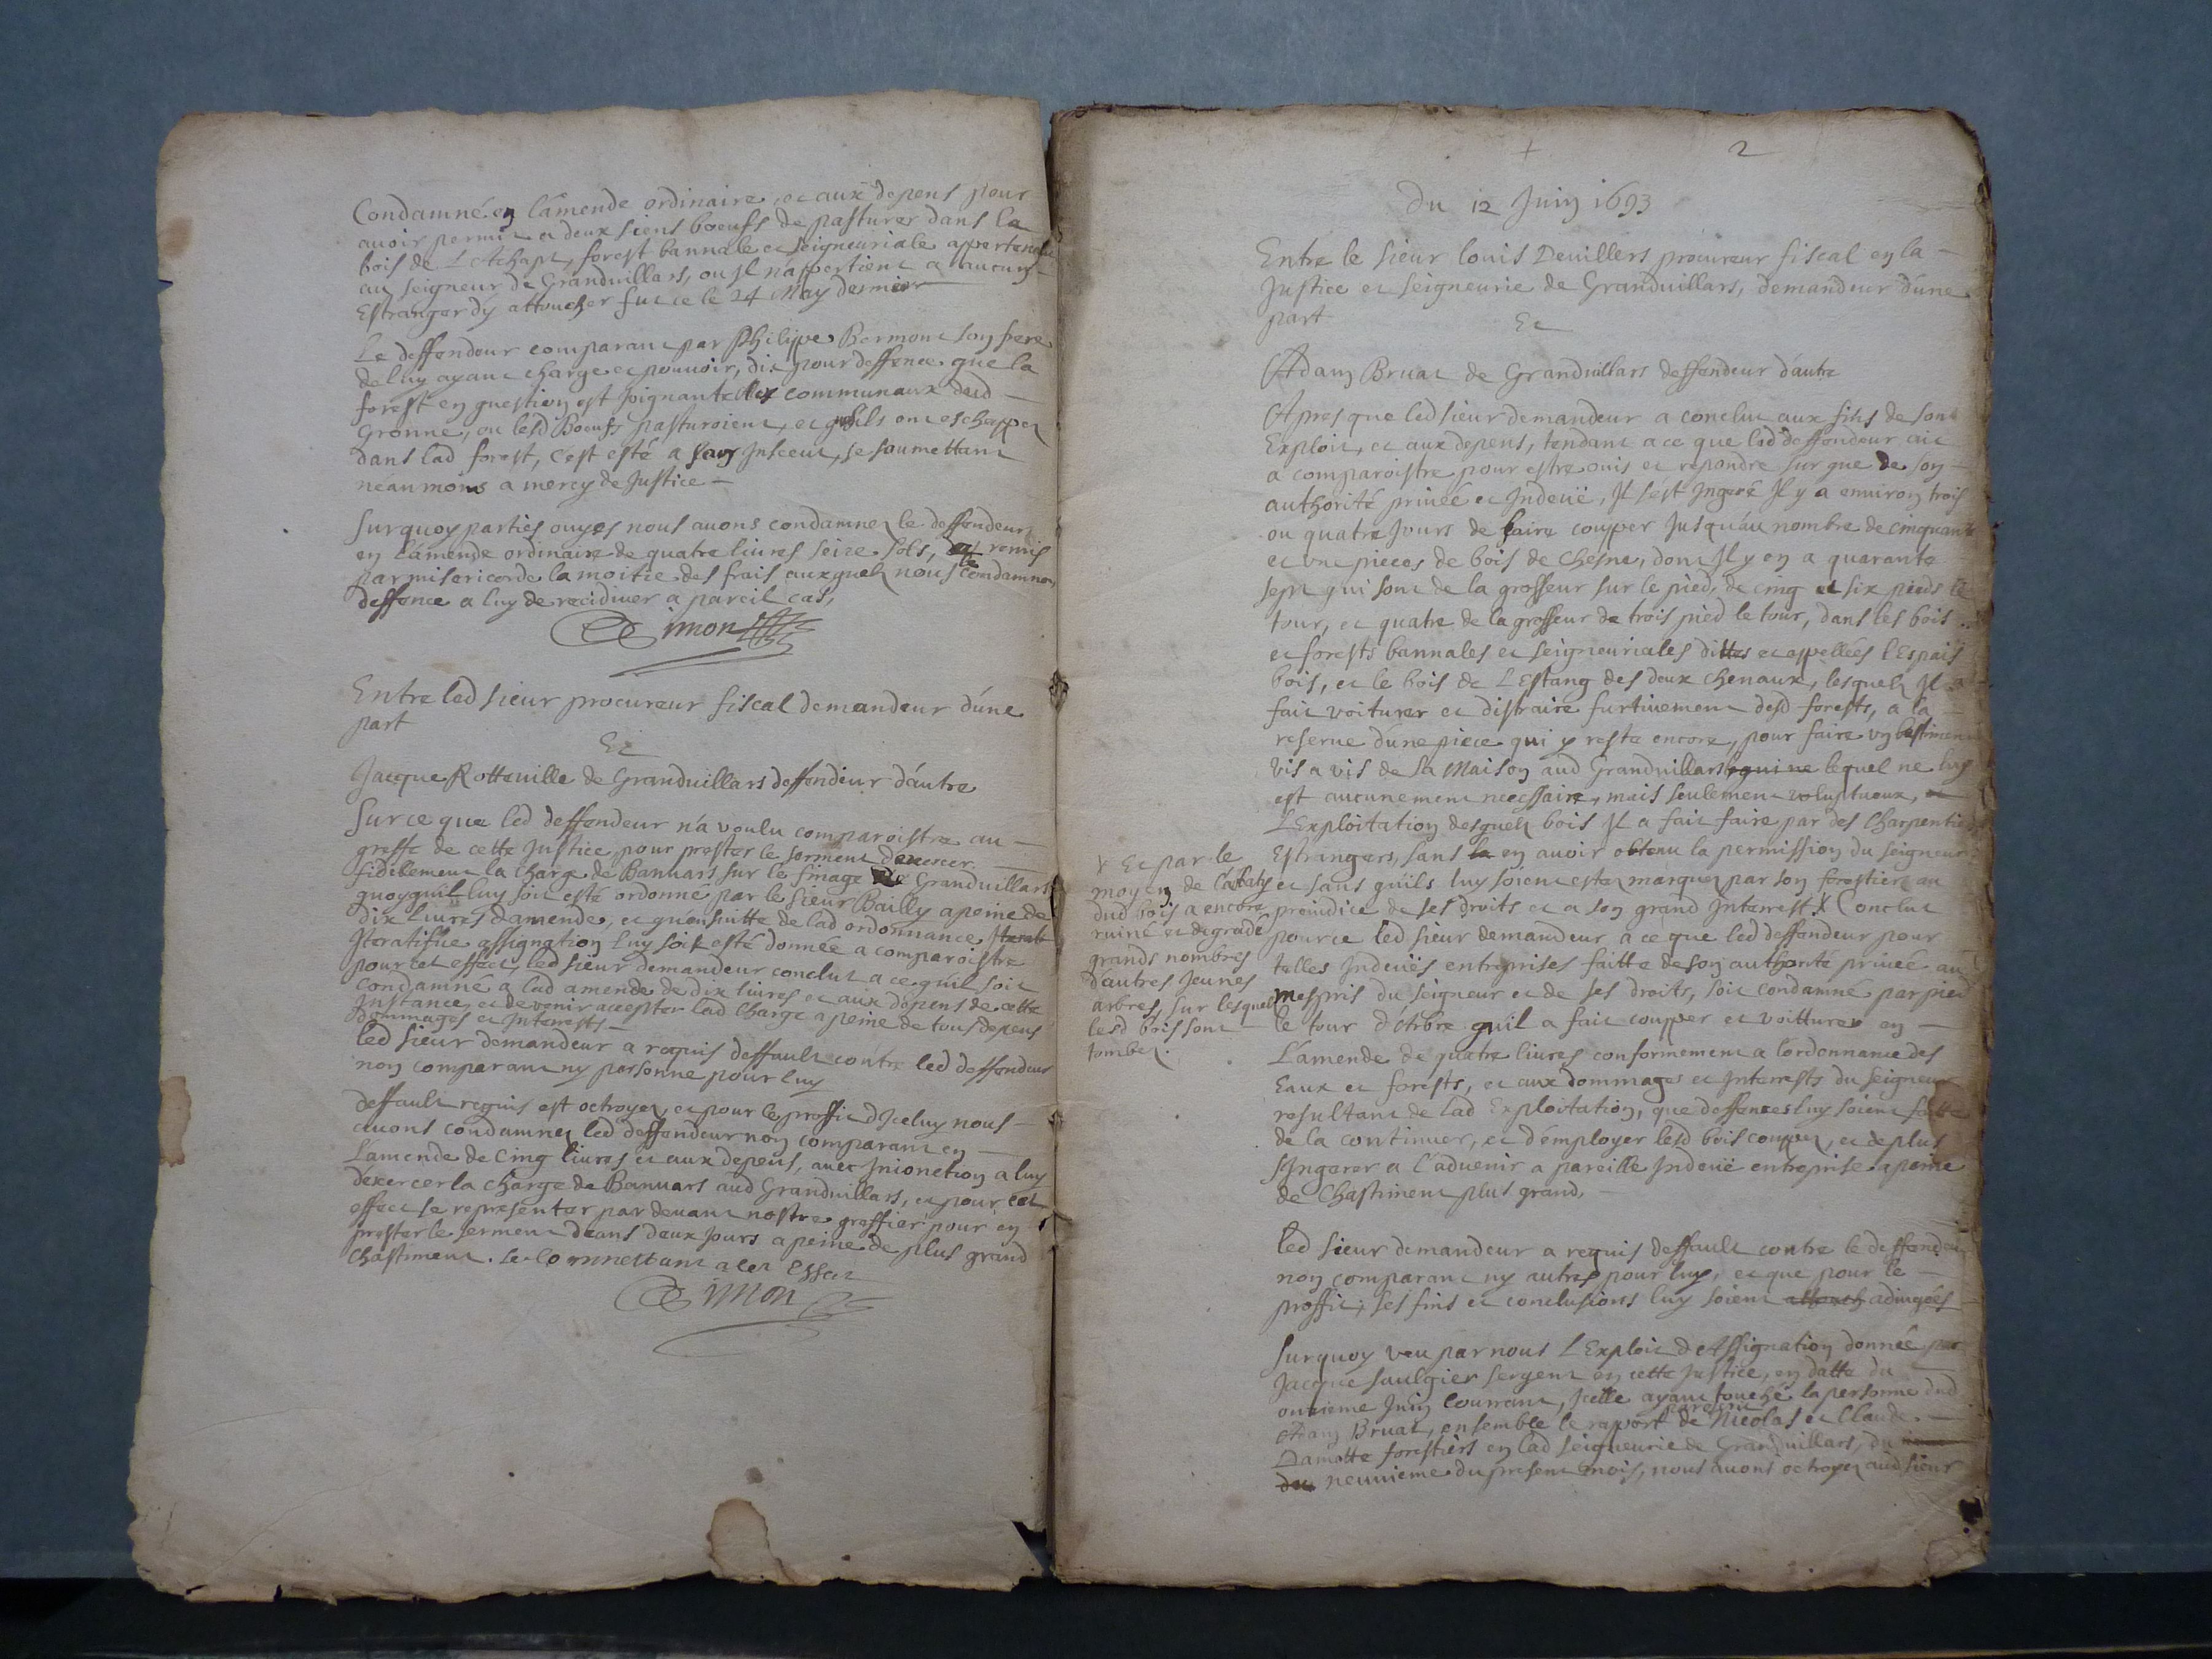 Condamné en l'amende ordinaire, et aux depens pour
avoir permit a deux siens boeufs de pasturer dans le
bois de L'Achapt, forest bannale et seigneuriale appertenant
au seigneur de Granduillars, ou Jl n'appertient a aucun
Estranger d'y attoucher fut ce le 24 May dernier
Le deffendeur comparant par Philippe Bermont son frere
de luy ayant charge et pouuoir, dit pour deffence que la
forest en question est joignante les communaux dud
Gronne, ou lesd Boeufs pasturoient, et qu'ils ont eschappez
dans lad forest, c'est esté a son Insceut, se soumettant
neanmoins a mercy de Justice
Surquoy parties ouyes nous auons condamnez le deffendeur
en l'amende ordinaire de quatre liures seize sols, remis
par misericorde la moitie des frais auxquelz nous le condamnons
deffence a luy de recidiuer a pareil cas,
Simon
Entre led sieur procureur fiscal demandeur d'une
part
Et
Jacque Rotteuille de Granduillars deffendeur d'autre
Sur ce que led deffendeur n'a voulu comparoistre au
greffe de cette Justice pour prester le serment d'exercer
fidellement la charge de Banuars sur le finage de Granduillars
quoyquil luy soit esté ordonné par le sieur Bailly a peine de
dix Liures d'amende, et qu'ensuitte de lad ordonnance
Iteratifue assignation luy soit esté donnée a comparoistre
pour cet effect, led sieur demandeur conclut a ce qu'il soit
condamné a lad amende de dix liures et aux depens de cette
Instance, et de venir accepter lad charge a peine de tous depens
dommages et Interests
led sieur demandeur a requis deffault contre led deffendeur
non comparant ny personne pour luy
deffault requis est octroyez, et pour le proffit d'Jceluy nous
auons condamnez led deffendeur non comparant en
L'amende de cinq liures et aux depens, auec Inionction a luy
d'exercer la charge de Banuars aud Granduillars, et pour cet
effect se representer par deuant nostre greffier pour en
prester le serment dans deux jours a peine de plus grand
chastiment. Le commettant a cet Effet
Simon
2
du 12 Juin 1693
Entre le sieur louis Deuillers procureur fiscal en la
Justice et seigneurie de Granduillars, demandeur d'une
part
Et
Adam Bruat de Granduillars deffendeur d'autre
Apres que led sieur demandeur a conclut aux fins de sont
Exploit, et aux depens, tendant a ce que led deffendeur ait
a comparoistre pour estre ouis et repondre sur que de son
authorité priuée et Indeuë, Jl s'est Ingeré Jl y a enuiron trois
ou quatre Jours de faire coupper Jusqu'au nombre de cinquante
et vne pieces de bois de Chesne, dont Jl y en a quarante
sept qui sont de la grosseur sur le pied, de cinq et six pieds le
tour, et quatre de la grosseur de trois pied le tour, dans les bois
et forests bannales et seigneuriales dittes et appellées l'Espais
bois, et le bois de L'Estang des deux chenaux, lesquelz Jl a
fait voiturer et distraire furtiuement desd forests, a la
reserue d'une piece qui y reste encore, pour faire vn bastiment
vis a vis de sa Maison aud Granduillars qui ne lequel ne luy
est aucunement necessaire, mais seulement voluptueux, et
L'Exploitation desquelz bois Jl a fait faire par des Charpentiers
Estrangers, sans la en auoir obtenu la permission du seigneur
et sans qu'ils luy soient estez marquez par son forestier au
preiudice de ses droits et a son grand Interrest X Conclut
X Et par le
moyen de l'abatis
dud bois a encore
ruiné et degradé
grands nombres
d'autres Jeunes
arbres, sur lesquelz
lesd bois sont
tombez.
pour ce led sieur demandeur a ce que led deffendeur pour
telles Indeuës entreprises faitte de son authorité priuée au
mespris du seigneur et de ses droits, soit condamné par pied
le tour d'Arbre qu'il a fait coupper et voitturer en
L'amende de quatre liures conformement a l'ordonnance des
Eaux et forests, et aux dommages et Interrests du seigneur
resultant de lad Exploitation, que deffences luy soient faitte
de la continuer, et d'employer lesd bois couppez, et de plus
s'Ingerer a l'aduenir a pareille Indeuë entreprise a peine
de Chastiment plus grand,
led sieur demandeur a requis deffault contre le deffendeur
non comparant ny autres pour luy, et que pour le
proffit, ses fins et conclusions luy soient adiugées
Surquoy veu par nous L'Exploit d'Assignation donnée par
Jacque Saulgier sergent en cette Justice, en datte du
onzieme Juin courrant, Jcelle ayant touché la personne dud
Adam Bruat, ensemble le raport de Nicolas et Claude
Damotte forestiers en lad seigneurie de Granduillars, du
du neuuieme du present mois, nous auons octroyez aud sieur